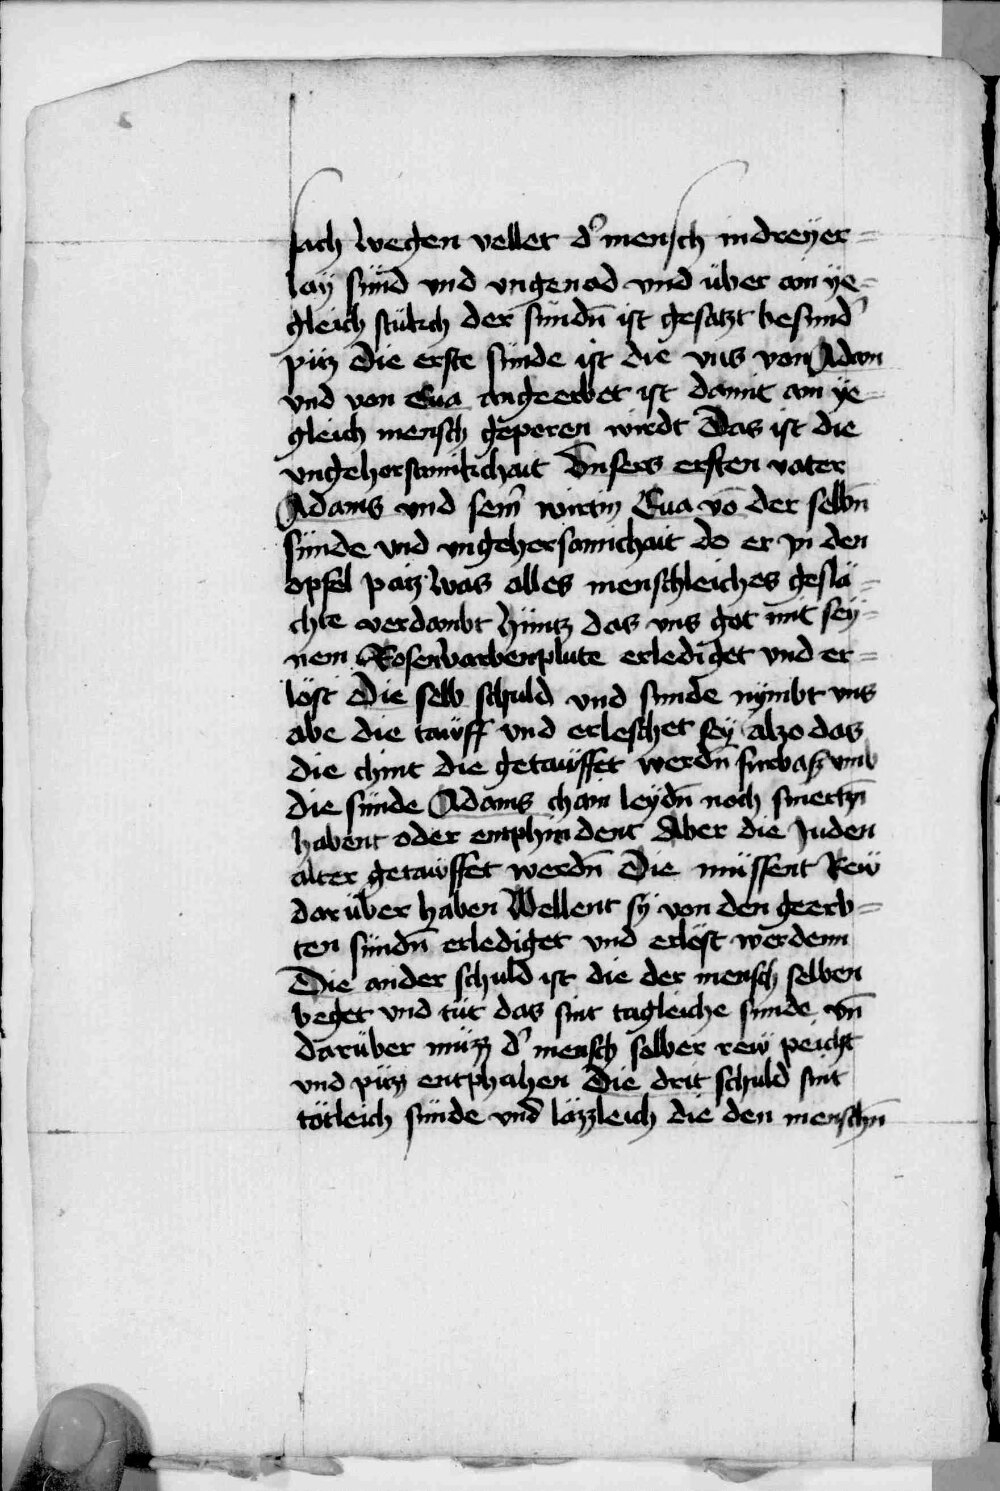 sach wegen vellet d' mensch in dreÿer=
laÿ sünd vnd vngenad vnd über ain ye=
gleich stükch der sündn̄ ist gesatzt besund'
püzz Die erste sünde ist die vns von Adam
vnd von Eua angeerbet ist damit ain ye=
gleich mensch geperen wirdt Das ist die
vngehorsamikchait Vnsers ersten vater
Adams vnd sein' wirtin Eua vō der selbn̄
sünde vnd vngehorsamichait do er yn den
opfel paiz was alles menschleiches geslä=
chte verdambt hüntz das vns got mit seÿ=
nem Rosenvarbenplute erlediget vnd er=
löst Die selb schuld vnd sunde nÿmbt vns
abe die tawff vnd erleschet seÿ also das
die chint die getawffet werdn̄ furbas vmb
die sünde Adams chain leÿdn̄ noch smertzn̄
habent oder emphindent Aber die Juden
alter getawffet werdn̄ Die müssent Rew
darüber haben Wellent sÿ von den geerb=
ten sündn̄ erlediget vnd erlöst werdenn
Die ander schuld ist die der mensch selben
beget vnd tüt das sint tagleiche sunde vn̄
darüber müzz d' mensch selber rew peicht
vnd püzz entphahen Die drit schuld sint
tötleich sünde vnd läzzleich die den menschn̄